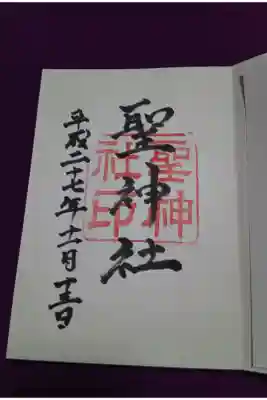 聖神社
平成二十七年十一月十三日
聖神
社印